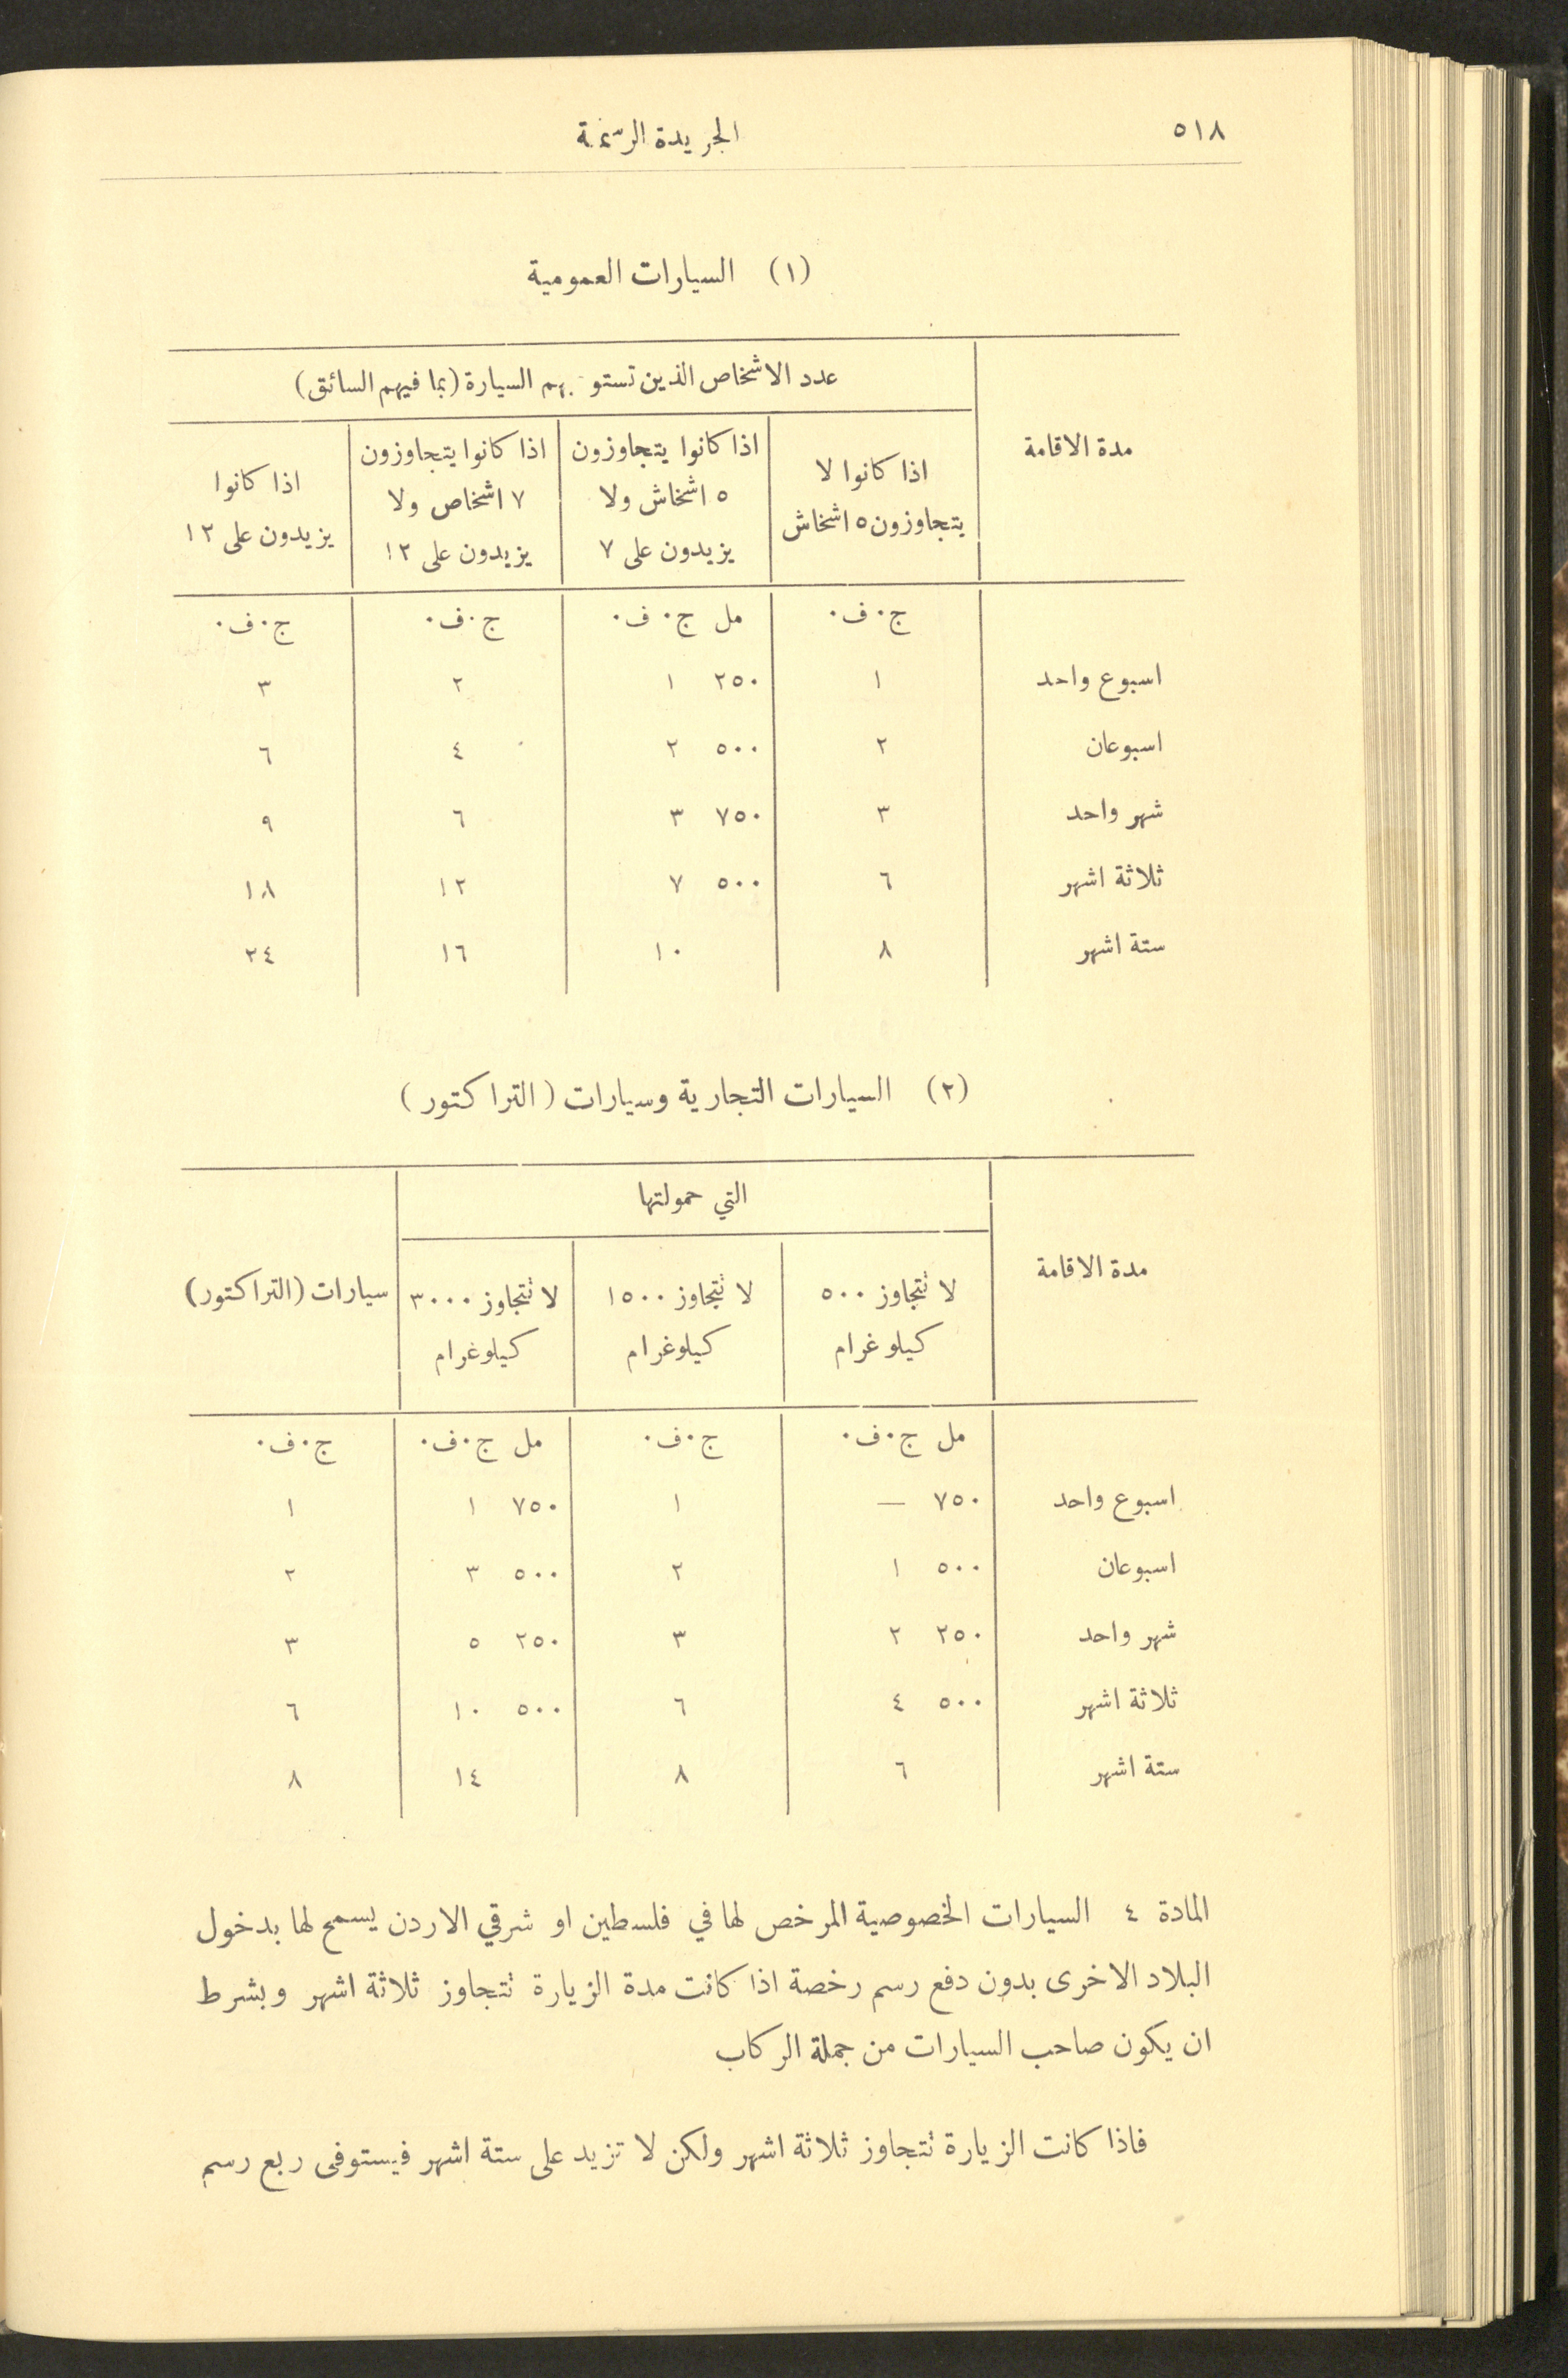 ٥١٨ الجريدة الرسمية
(١) السيارات العمومية
عدد الاشخاص الذين تستو بهم السيارة (بما فيهم السائق)
مدة الاقامة
اذا كانوا لا
يتجاوزون ٥ اشخاش
اذا كانوا يتجاوزون
٥ اشخاش ولا
يزيدون على ٧
اذا كانوا يتجاوزون
٧ اشخاص ولا
يزيدون على ١٢
اذا كانوا
يزيدون على ١٢
ج٠ ف٠ مل ج٠ ف٠ ج٠ف٠ ج٠ف٠
اسبوع واحد ١ ٢٥٠ ١ ٢ ٣
اسبوعان ٢ ٥٠٠ ٢ ٤ ٦
شهر واحد ٣ ٧٥٠ ٣ ٦ ٩
ثلاثة اشهر ٦ ٥٠٠ ٧ ١٢ ١٨
ستة اشهر ٨ ١٠ ١٦ ٢٤
(٢) السيارات التجارية وسيارات (التراكتور)
التي حمولتها
مدة الاقامة
لا تتجاوز ٥٠٠
كيلو غرام
لا تتجاوز ١٥٠٠
كيلوغرام
لا تتجاوز ٣٠٠٠
كيلوغرام
سيارات (التراكتور)
مل ج٠ف٠ ج٠ف٠ مل ج٠ف٠ ج٠ف٠
اسبوع واحد ٧٥٠ — ١ ٧٥٠ ١ ١
اسبوعان ٥٠٠ ١ ٢ ٥٠٠ ٣ ٢
شهر واحد ٢٥٠ ٢ ٣ ٢٥٠ ٥ ٣
ثلاثة اشهر ٥٠٠ ٤ ٦ ٥٠٠ ١٠ ٦
ستة اشهر ٦ ٨ ١٤ ٨
المادة ٤ السيارات الخصوصية المرخص لها في فلسطين او شرقي الاردن يسمح لها بدخول
البلاد الاخرى بدون دفع رسم رخصة اذا كانت مدة الزيارة تتجاوز ثلاثة اشهر وبشرط
ان يكون صاحب السيارات من جملة الركاب
فاذا كانت الزيارة تتجاوز ثلاثة اشهر ولكن لا تزيد على ستة اشهر فيستوفى ربع رسم